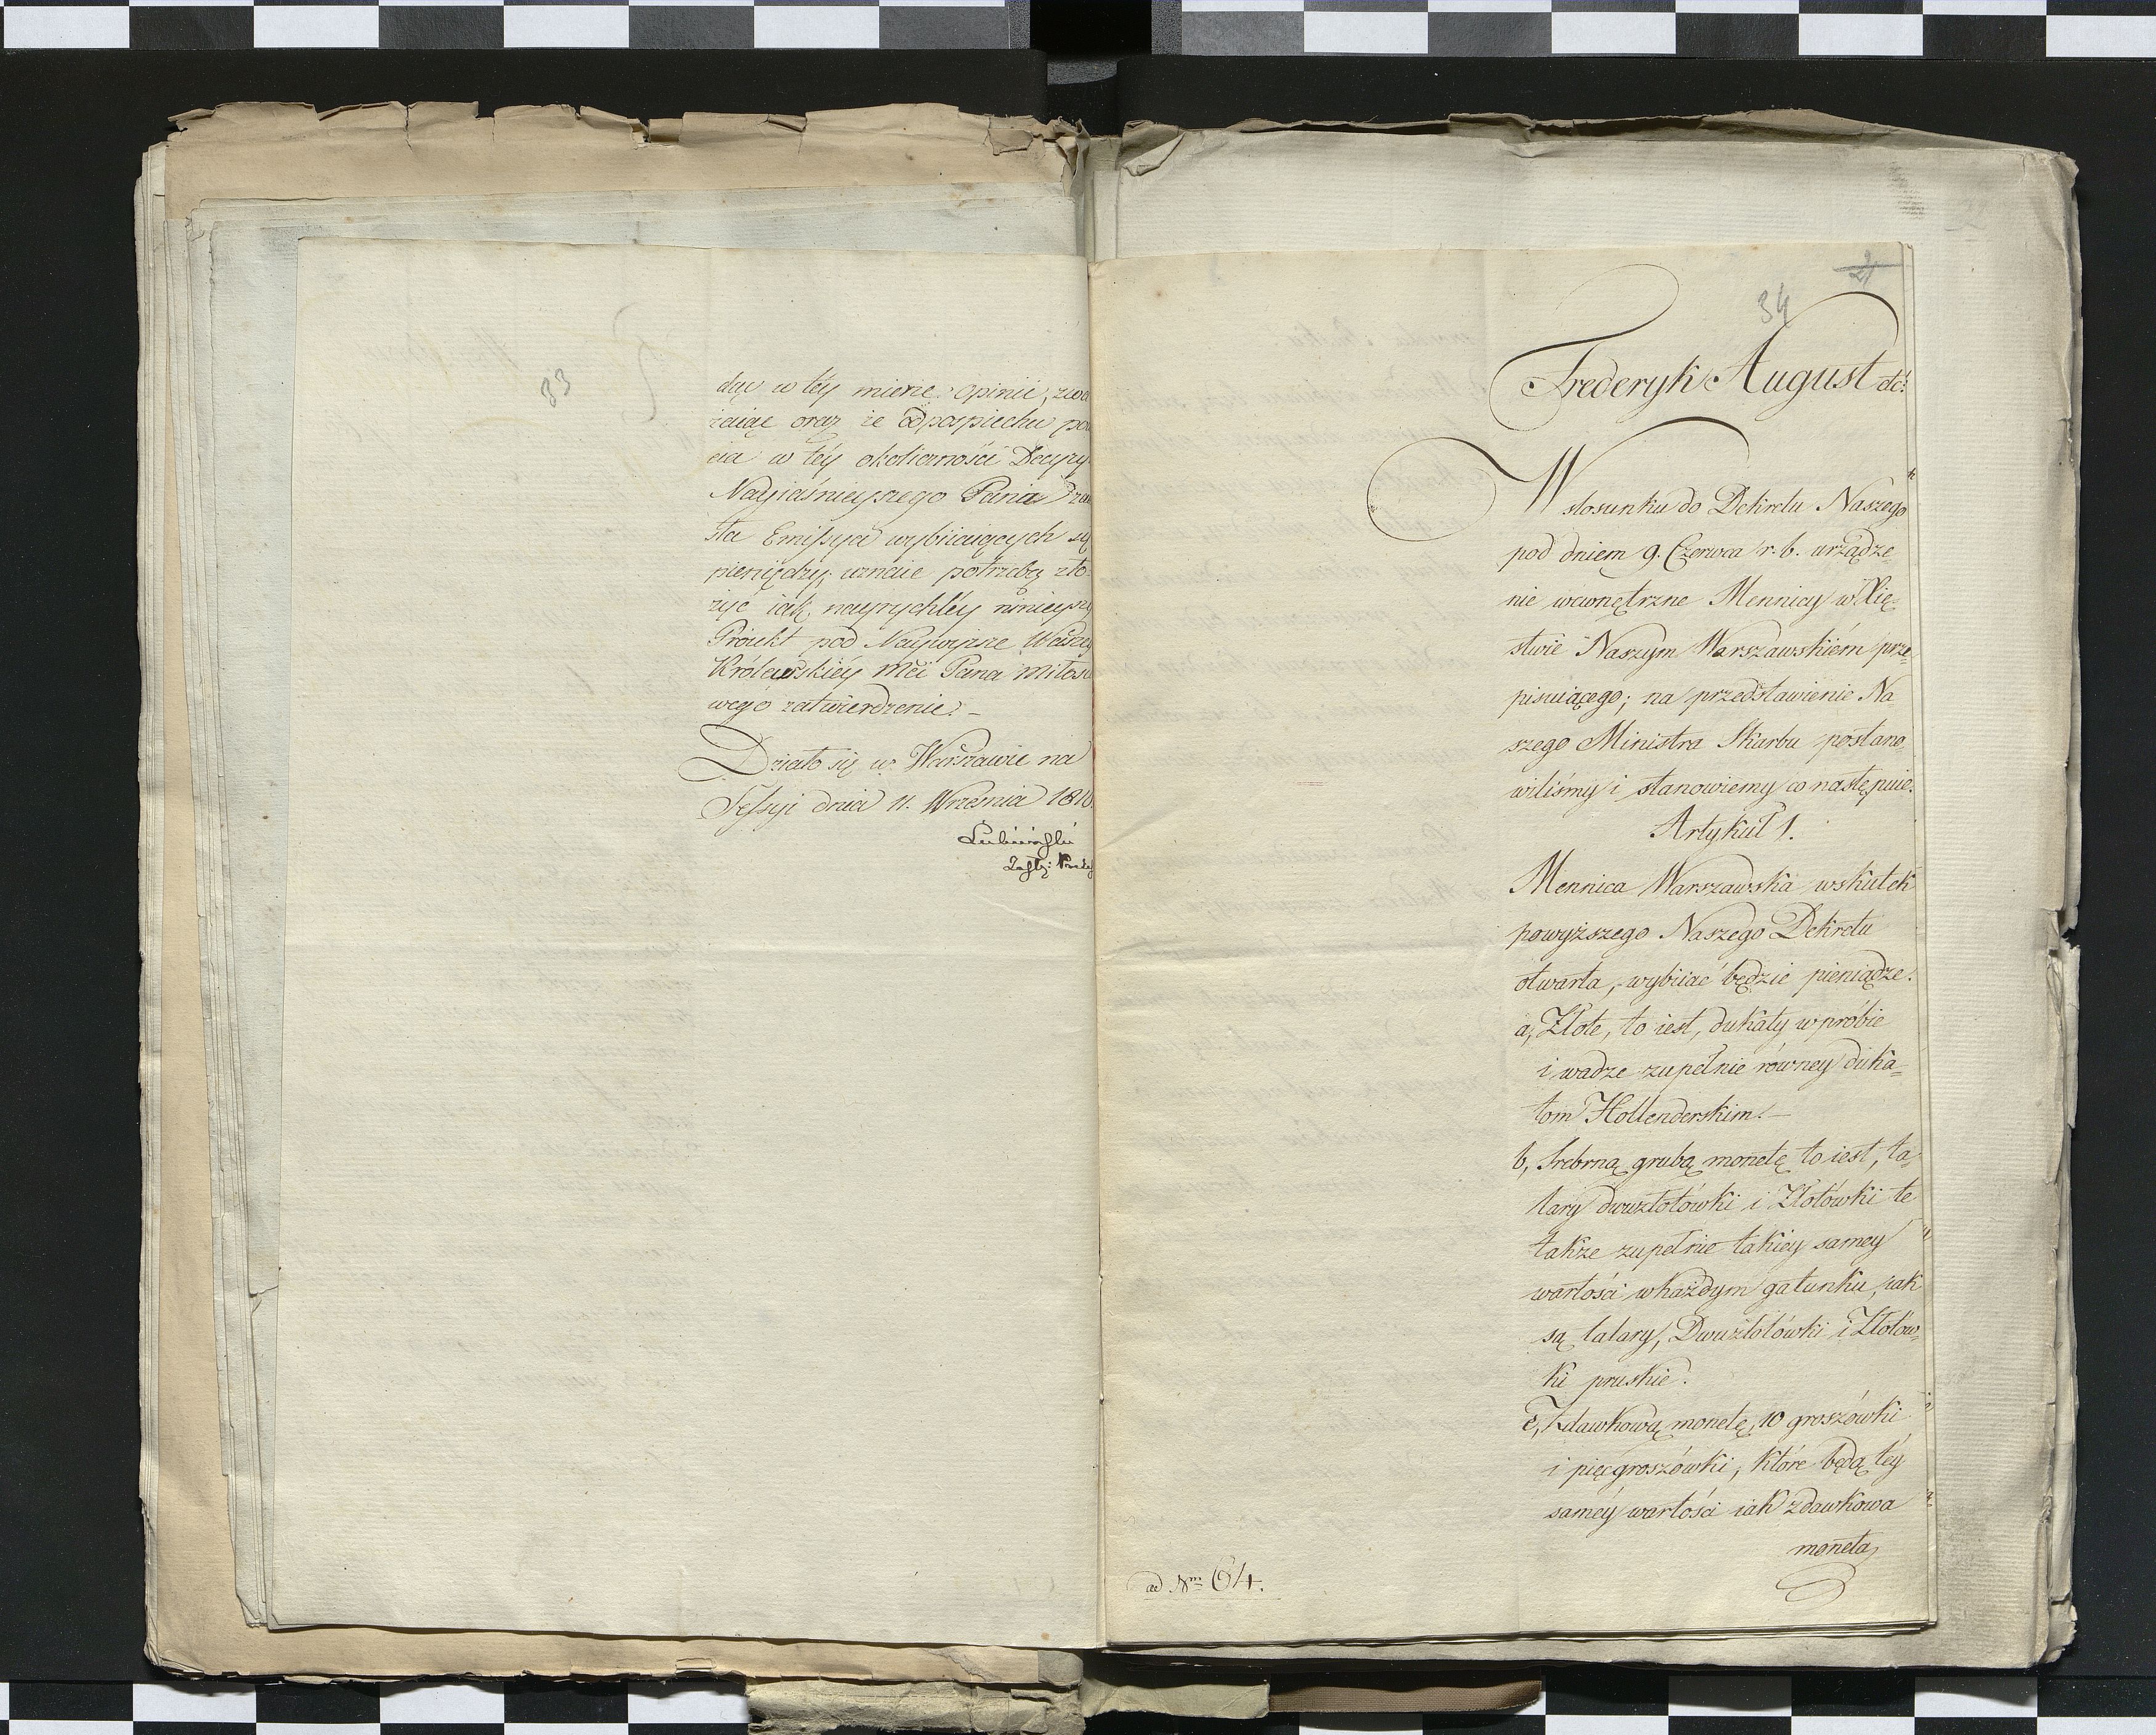 33
dąc w téy mierze opinii, zwa
żaiąc oraz że od pospiechu po
cia w téy okoliczności Decyzyi
Nayiaśnieyszego Pana
sta Emissya wybiiaiących się
pieniędzy, uznaie potrzebę zło-
żyć iak nayrychléy ninieyszy
Proiekt pod Naywyższe Waszey
Królewskiéy Mći Pana Miłości
wego zatwierdzenie. –
Działo się w Warszawie na
Sessyi dnia 11. Września 1810
Lubieński
Zastę:
34
Frederyk August etc:
W stosunku do Dekretu Naszego
pod dniem 9. Czerwca r. b. urządze-
nie wewnętrzne Mennicy w Xię-
stwie Naszym Warszawskiém prze-
pisuiącego; na przedstawienie Na-
szego Ministra Skarbu postano-
wiliśmy i stanowiemy co następuie.
Artykuł 1.
Mennica Warszawska wskutek
powyższego Naszego Dekretu
otwarta, wybiiac będzie pieniądze.
a, Złote, to iest, dukaty w próbie
i wadze zupełnie równey duka-
tom Hollenderskim. –
b, Srebrną grubą monetę to iest, ta-
lary dwuzłotówki i Złotówki te
także zupełnie takiey samey
wartości w każdym gatunku, iak
są talary, Dwuzłotówki i Złotów-
ki pruskie.
c, Zdawkową monetę, 10 groszówki
i pięcgroszówki, które będą téy
saméy wartości iak zdawkowa
moneta
ad Nm 64.